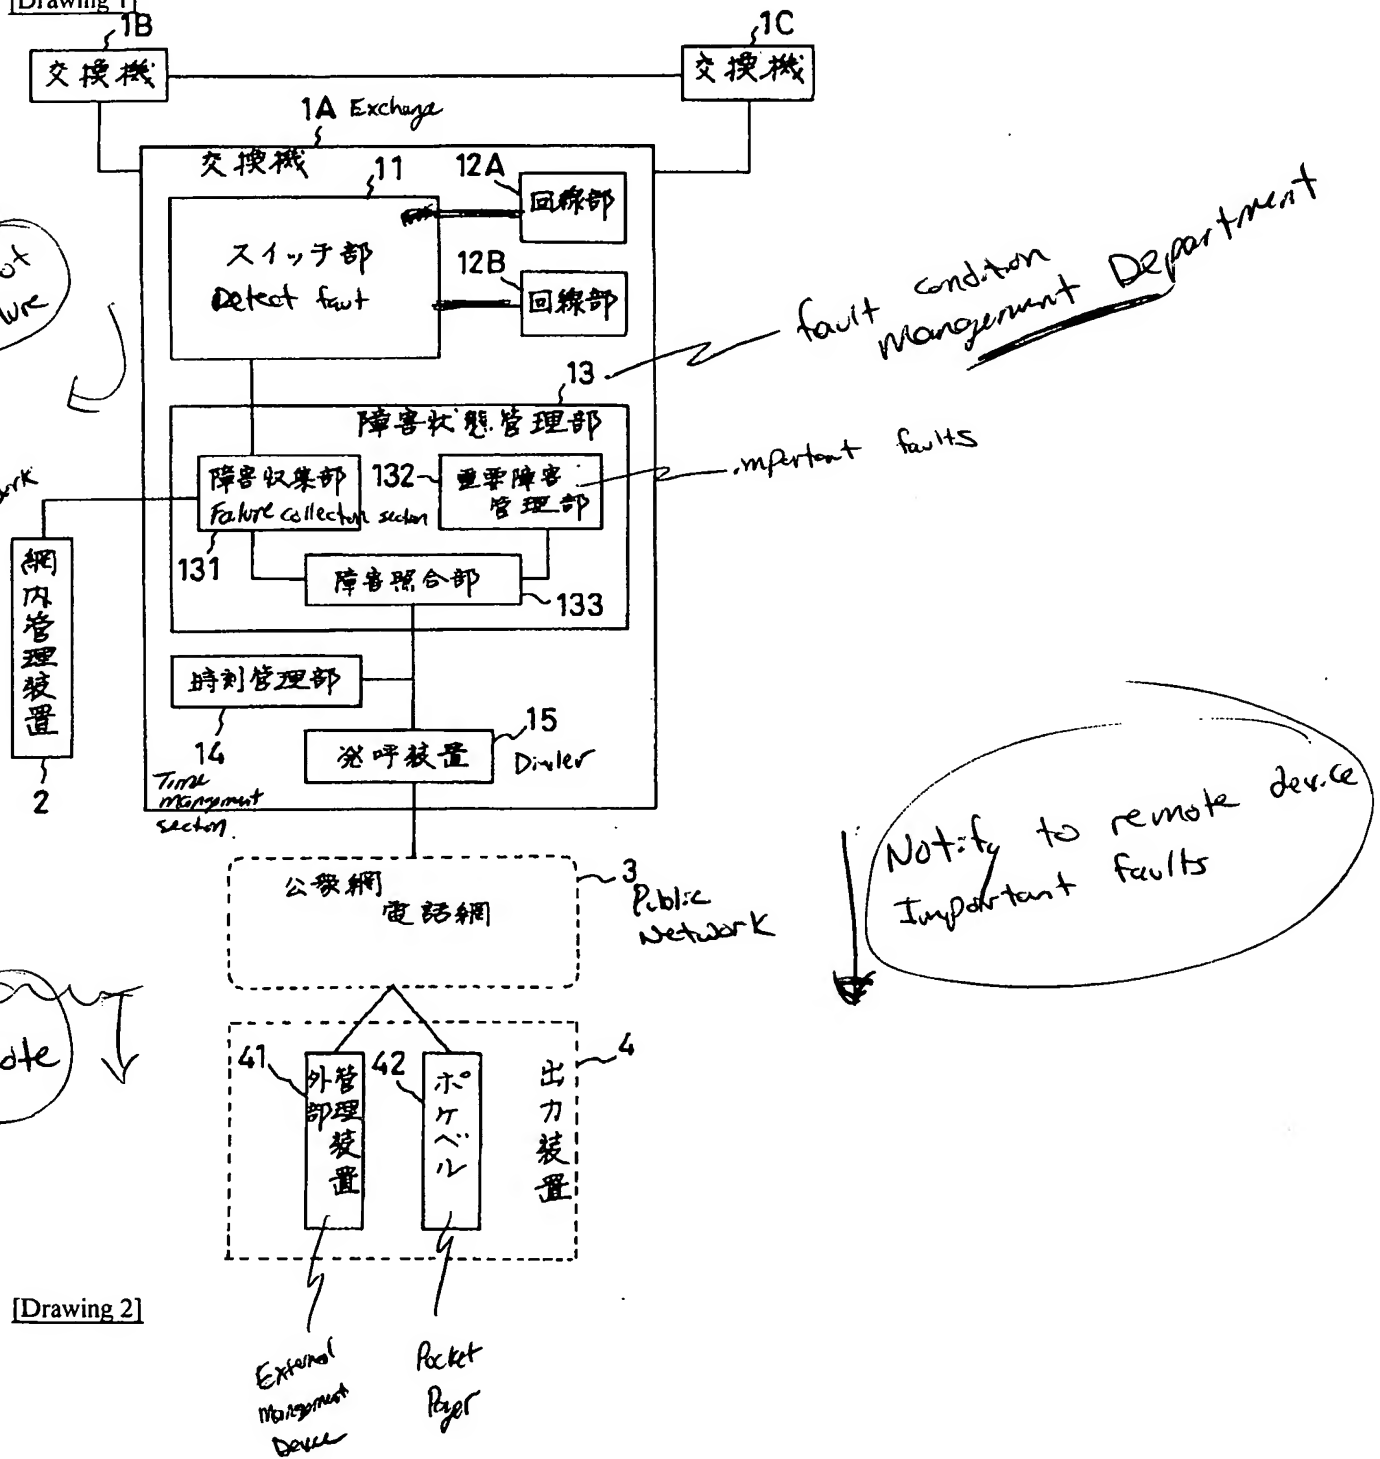 [Drawing 1]
1B
交換機
1C
交換機
1A Exchange
交換機
11
スイッチ部
Detect faut
12A
回線部
12B
回線部
fault condition
Management Department
13
障害状態管理部
障害収集部
Failure collection section
131
132
重要障害
管理部
important faults
障害照合部
133
網内管理装置
2
時刻管理部
14
Time
management
section.
発呼装置
15
Dialer
公衆網
電話網
3
Public
Network
Notify to remote device
Important faults
41
外部管理装置
42
ポケベル
出力装置
4
External
Management
Device
Pocket
Pager
[Drawing 2]